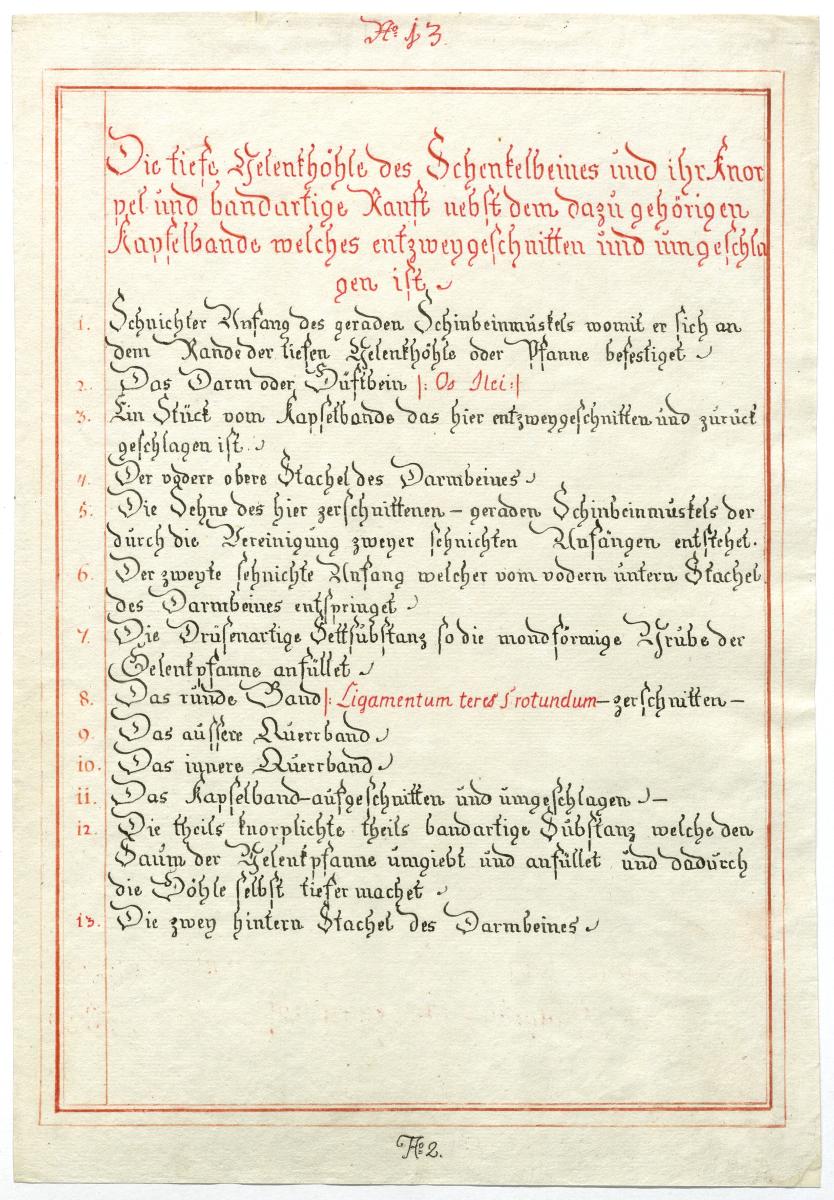 No 13.
Die tiefe Gelenkhöhle des Schenkelbeines und ihr Knor
pel und bandartige Ranft nebst dem dazu gehörigen
Kapselbande welches entzweygeschnitten und umgeschla
gen ist.
1. Sehnichter Anfang des geraden Schinbeinmuskels womit er sich an
dem Rande der tiefen Gelenkhöhle oder Pfanne befestiget
2. Das Darm oder Hüftbein |: Os Ilei :|
3. Ein Stück vom Kapselbande das hier entzweygeschnitten und zurück
geschlagen ist.
4. Der vodere obere Stachel des Darmbeines
5. Die Sehne des hier zerschnittenen – geraden Schinbeinmuskels der
durch die Vereinigung zweyer sehnichten Anfängen entstehet.
6. Der zweyte sehnichte Anfang welcher vom vodern untern Stachel
des Darmbeines entspringet
7. Die Drüsenartige Fettsubstanz so die mondförmige Grube der
Gelenkpfanne anfüllet
8. Das runde Band |: Ligamentum teres rotundum – zerschnitten –
9. Das äussere Querrband
10. Das innere Querrband
11. Das Kapselband – aufgeschnitten und umgeschlagen –
12. Die theils knorplichte theils bandartige Substanz welche den
Saum der Gelenkpfanne umgiebt und anfüllet und dadurch
die Höhle selbst tiefer machet
13. Die zwey hintern Stachel des Darmbeines
No 2.